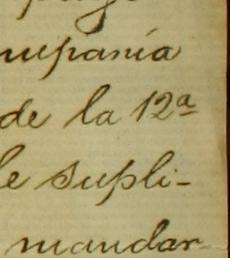 mpanía
de la 12ª
le supli-
mandar